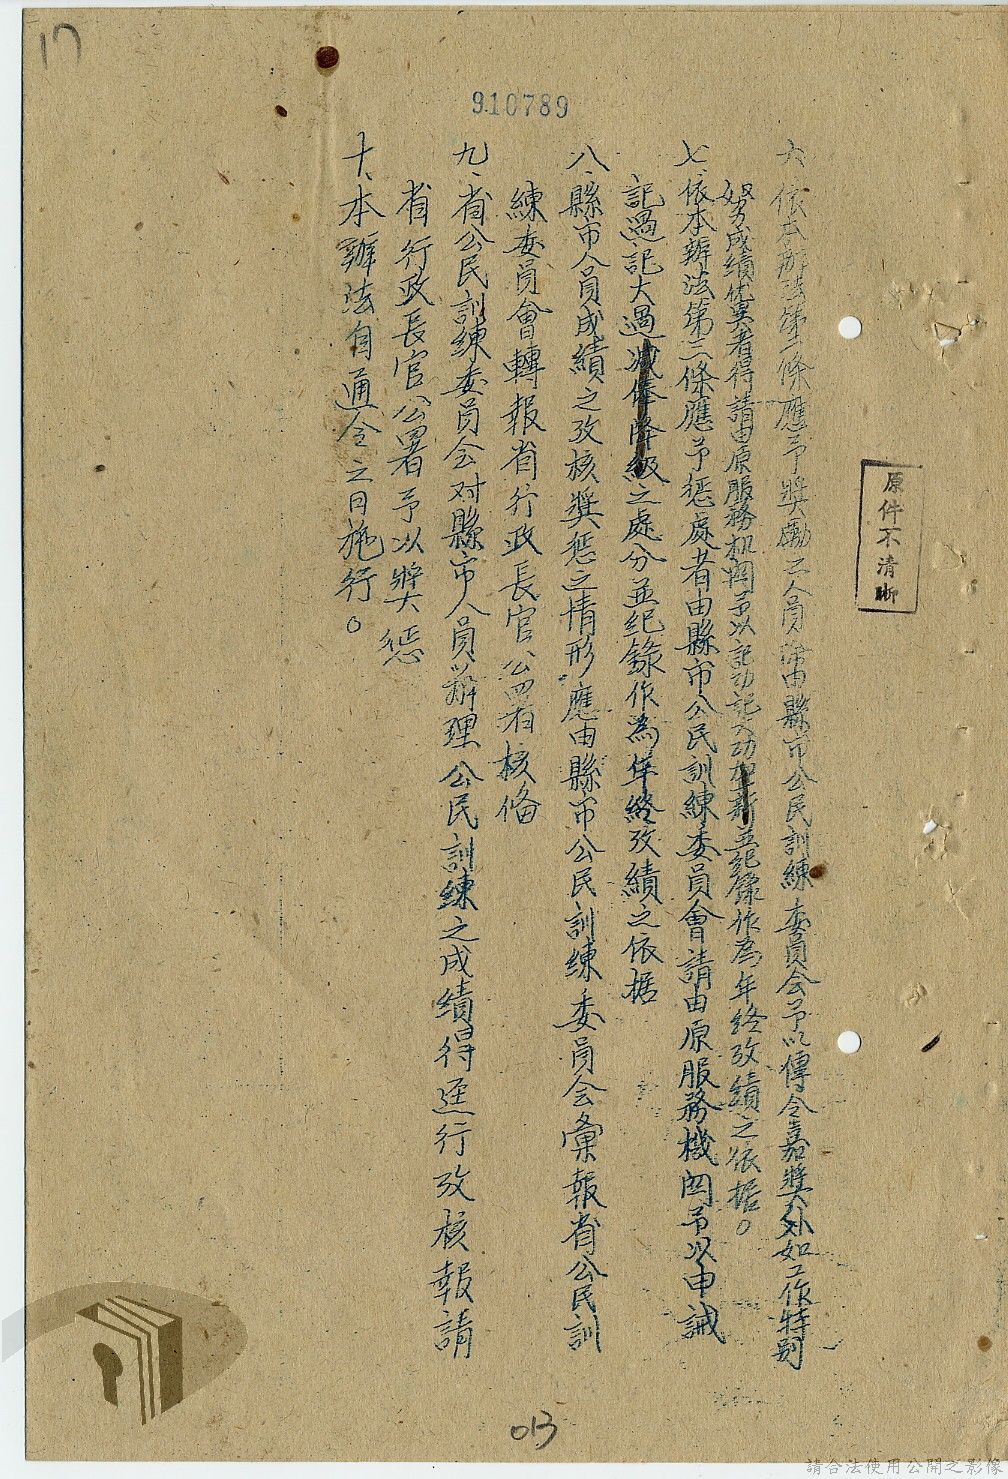 17
910789
六、依本辦法第二條應予獎勵之人員除由縣市公民訓練委員会予以傳令嘉獎外如工作特別
努力成績优異者得請由原服務机関予以記功記大功並紀錄作為年終攷績之依据。
七、依本辦法第二條應予懲處者由縣市公民訓練委員會請由原服務機関予以申誡
記過記大過減俸降級之處分並紀錄作為年終攷績之依据
八、縣市人員成績之攷核獎懲之情形應由縣市公民訓練委員会彙報省公民訓
練委員會轉報省行政長官公署核俻
九、省公民訓練委員会对縣市人員辦理公民訓練之成績得逕行攷核報請
省行政長官公署予以獎懲
十、本辦法自通令之日施行。
原件不清晰
013
請合法使用公開之影像